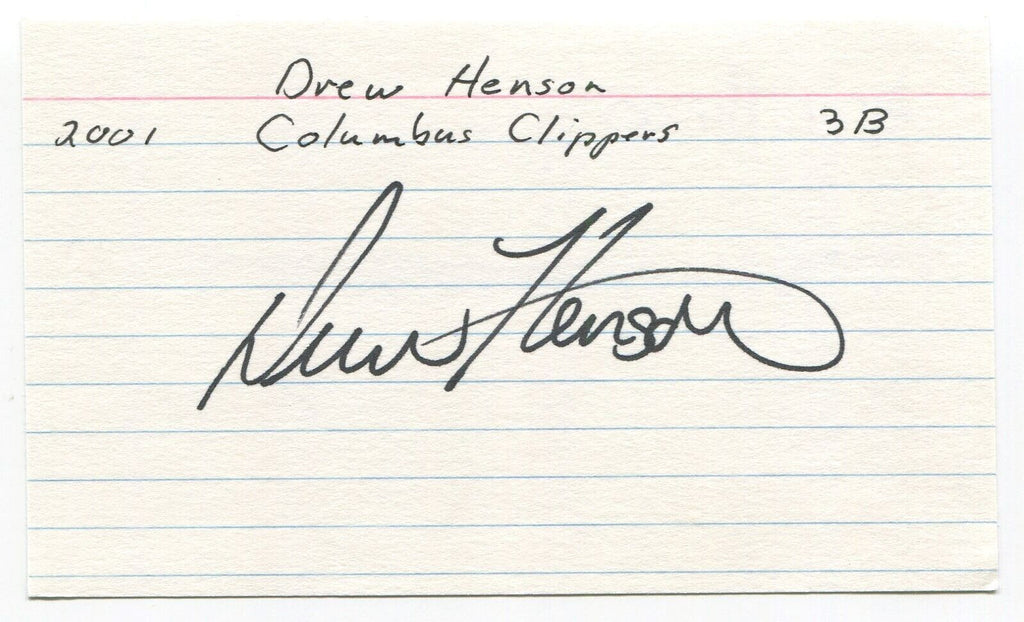 Drew Henson
2001 Columbus Clippers 3B
Drew Henson